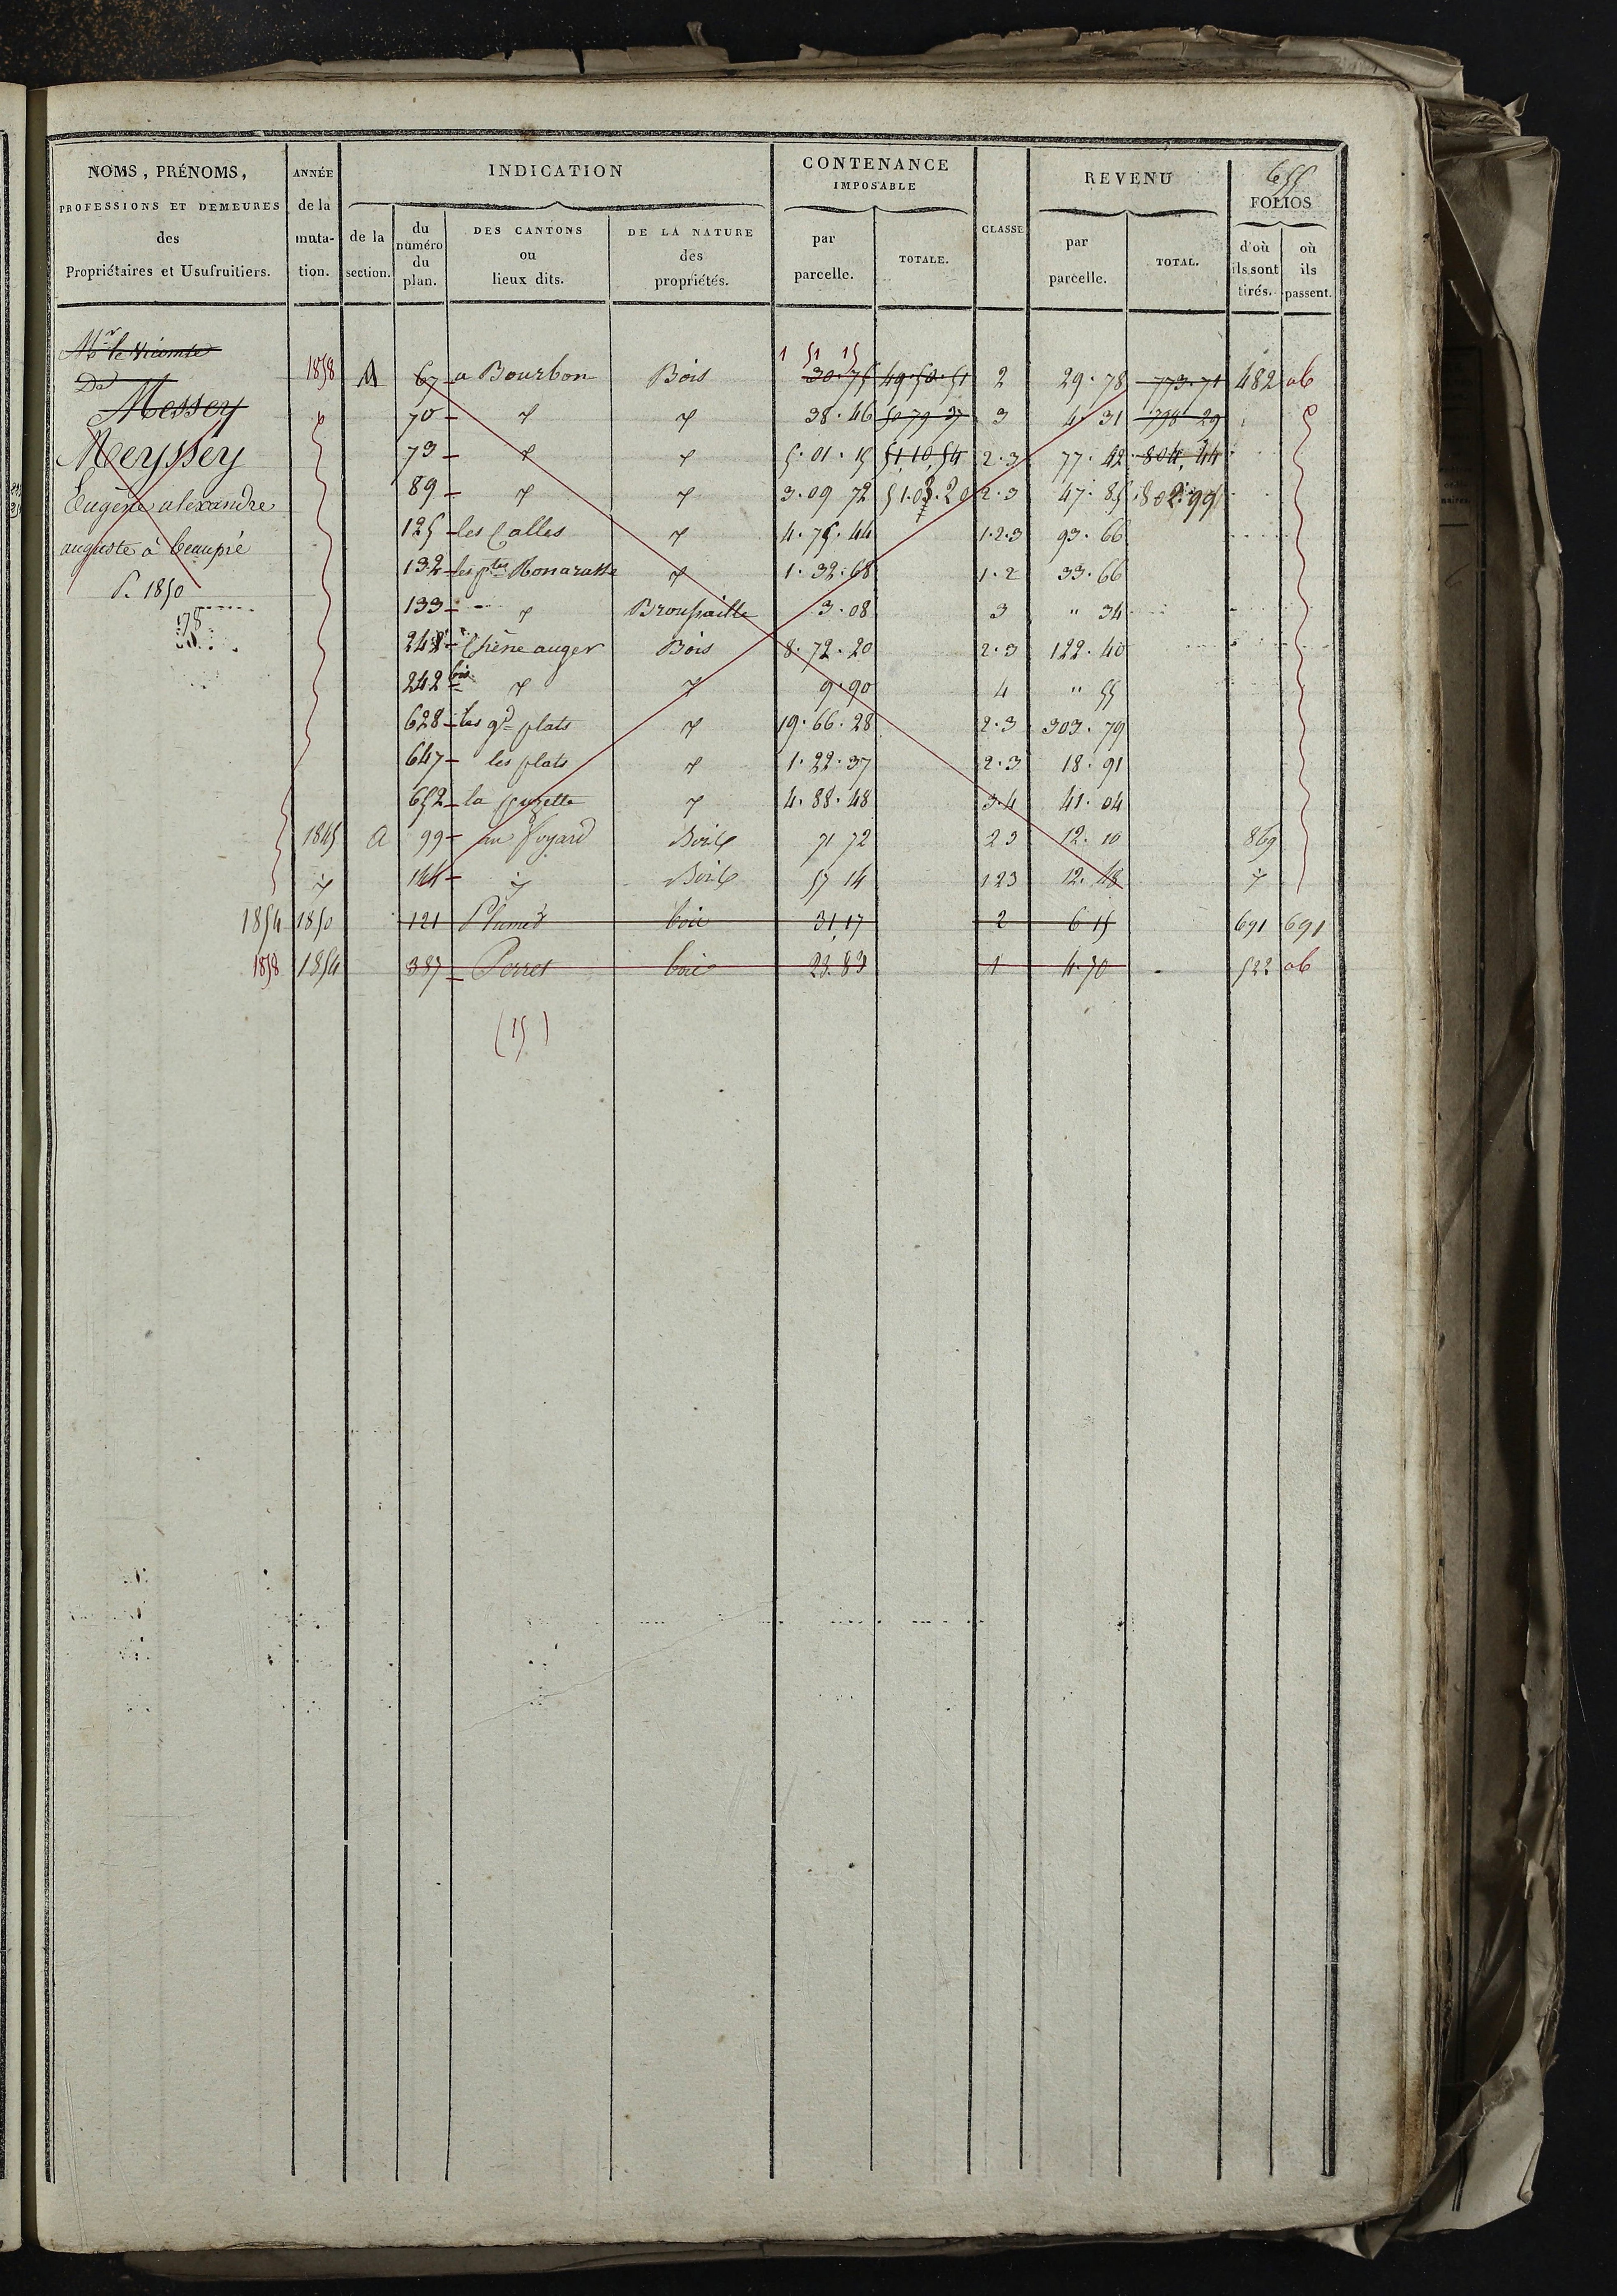 655
NOMS, PRÉNOMS, PROFESSIONS ET DEMEURES des Propriétaires et Usufruitiers.
ANNÉE de la muta- tion.
INDICATION
de la section.
du numéro du plan.
DES CANTONS ou lieux dits.
DE LA NATURE des propriétés.
CONTENANCE IMPOSABLE
par parcelle.
TOTALE.
CLASSE
REVENU
par parcelle.
TOTAL.
FOLIOS
d'où ils sont tirés.
où ils passent.
Mr le Vicomte
De
Messey
Meyssey
Eugène alexandre
auguste à beaupré
P. 1850
1 51 15
1858 A 67 a Bourbon Bois 30.76 49.50.51 2 29.78 773.71 482 ab
70 38.46 50 79 37 3 4.31 798 29
73 5.01.15 51,10,54 2.3 77.42 804,44
89 3.09 72 51.03.20 2.3 47.85 802.99
125 les Calles 4.75.44 1.2.3 93.66
132 les ptes 1.32.68 1.2 33.66
133 Broussaille 3.08 3 " 34
241 Chêne auger Bois 8.72.20 2.3 122.40
242 bis 9.90 4 " 55
628 les gd plats 19.66.28 2.3 303.79
647 les plats 1.22.37 2.3 18.91
652 la 4.88.48 3.4 41.04
1845 a 99 au foyard Bois 71 72 2 3 12.10 869
144 Bois 57 14 1 2 3 12.48
1854 1850 121 bois 31,17 2 6 15 691 691
1858 1854 387 Perret bois 23.83 1 4.70 522 ab
(15)